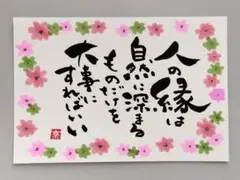 人の縁は
自然に深まる
ものだけを
大事に
すればいい